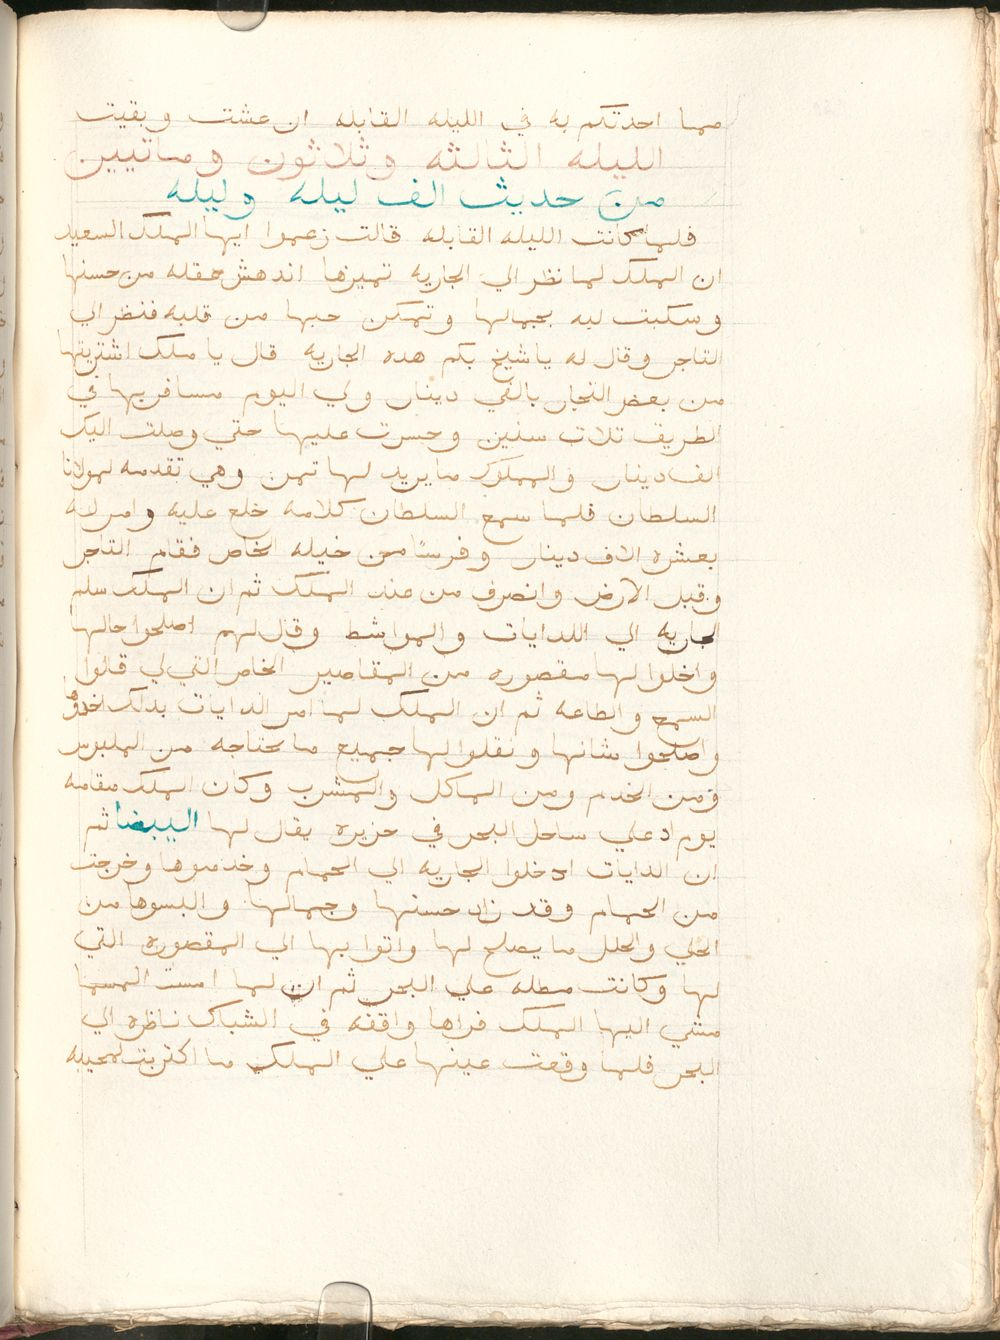 مما احدتكم به في الليله القابله ان عشت وبقيت
الليله الثالثه وثلاثون وماتيين
من حديث الف ليله وليله
فلما كانت الليله القابله قالت زعموا ايها الملك السعيد
ان الملك لما نظر الي الجاريه تميزها اندهش عقله من حسنها
وسكبت لبه بجمالها وتمكن حبها من قلبه فنظر الي
التاجر وقال له ياشيخ بكم هده الجاريه قال يا ملك اشتريتها
من بعض التجار بالفي دينار ولي اليوم مسافر بها في
الطريف تلات سنين وخسرت عليها حتي وصلت اليك
الف دينار والمملوك ما يريد لها تمن وهي تقدمه لمولانا
السلطان فلما سمع السلطان كلامه خلع عليه وامر له
بعشره الاف دينار وفرسا من خيله الخاص فقام التاجر
وقبل الارض وانصرف من عند الملك ثم ان الملك سلم
الجاريه الي اللدايات والمواشط وقال لهم اصلحوا حالها
واخلوا لها مقصوره من المقاصير الخاص التي لي قالوا
السمع والطاعه ثم ان الملك لما امر الدايات بدلك اخدوها
واصلحوا شانها ونقلوا لها جميع ما تحتاجه من الملبوس
ومن الخدم ومن الماكل والمشرب وكان الملك مقامه
يوم اد علي ساحل البحر في جزيره يقال لها البيضا ثم
ان الدايات ادخلوا الجاريه الي الحمام وخدموها وخرجت
من الحمام وقد زاد حسنها وجمالها والبسوها من
الحلي والحلل ما يصلح لها واتوا بها الي المقصوره التي
لها وكانت مطله علي البحر ثم ان لما امست المسا
مشي اليها الملك فراها واقفه في الشباك ناظره الي
البحر فلما وقعت عينها علي الملك ما اكتربت لمجيه